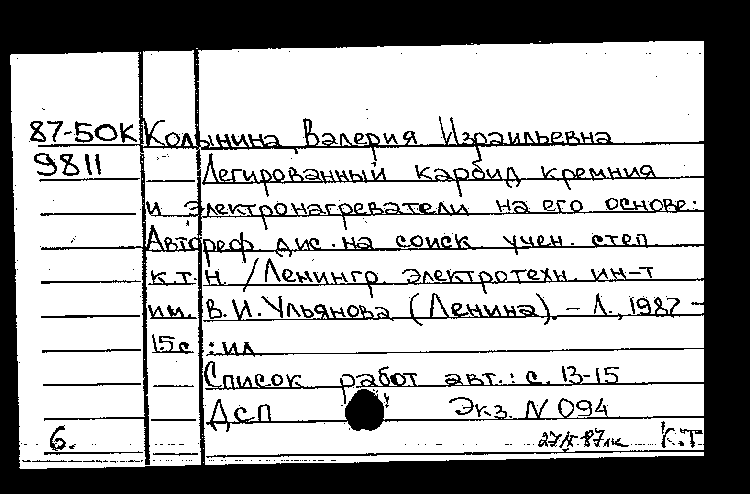 87-5ОК Колынина Валерия Израильевна
9811 Легированный карбид кремния
и электронагреватели на его основе:
Автореф. дис. на соиск. учен. степ.
к.т.н. /Ленингр. электротехн. ин-т
им. В.И.Ульянова (Ленина). - Л., 1987 -
15с : ил
Список работ авт.: с. 13-15
ДСП Экз. N 094
6. К.Т